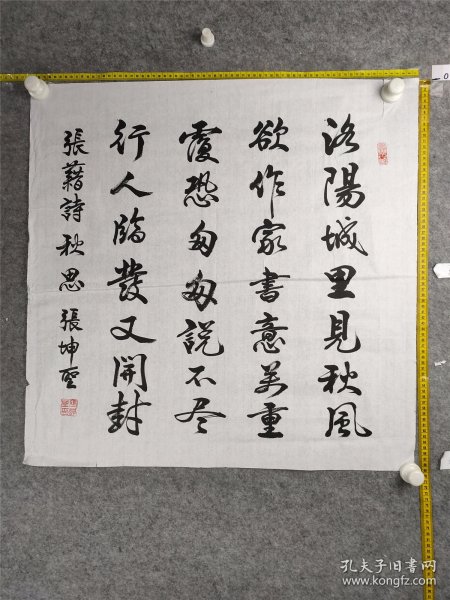 洛陽城里見秋風
欲作家書意萬重
覆恐匆匆說不尽
行人臨發又開封
張藉詩秋思 張坤聖
孔夫子旧书网
www.kongfz.com